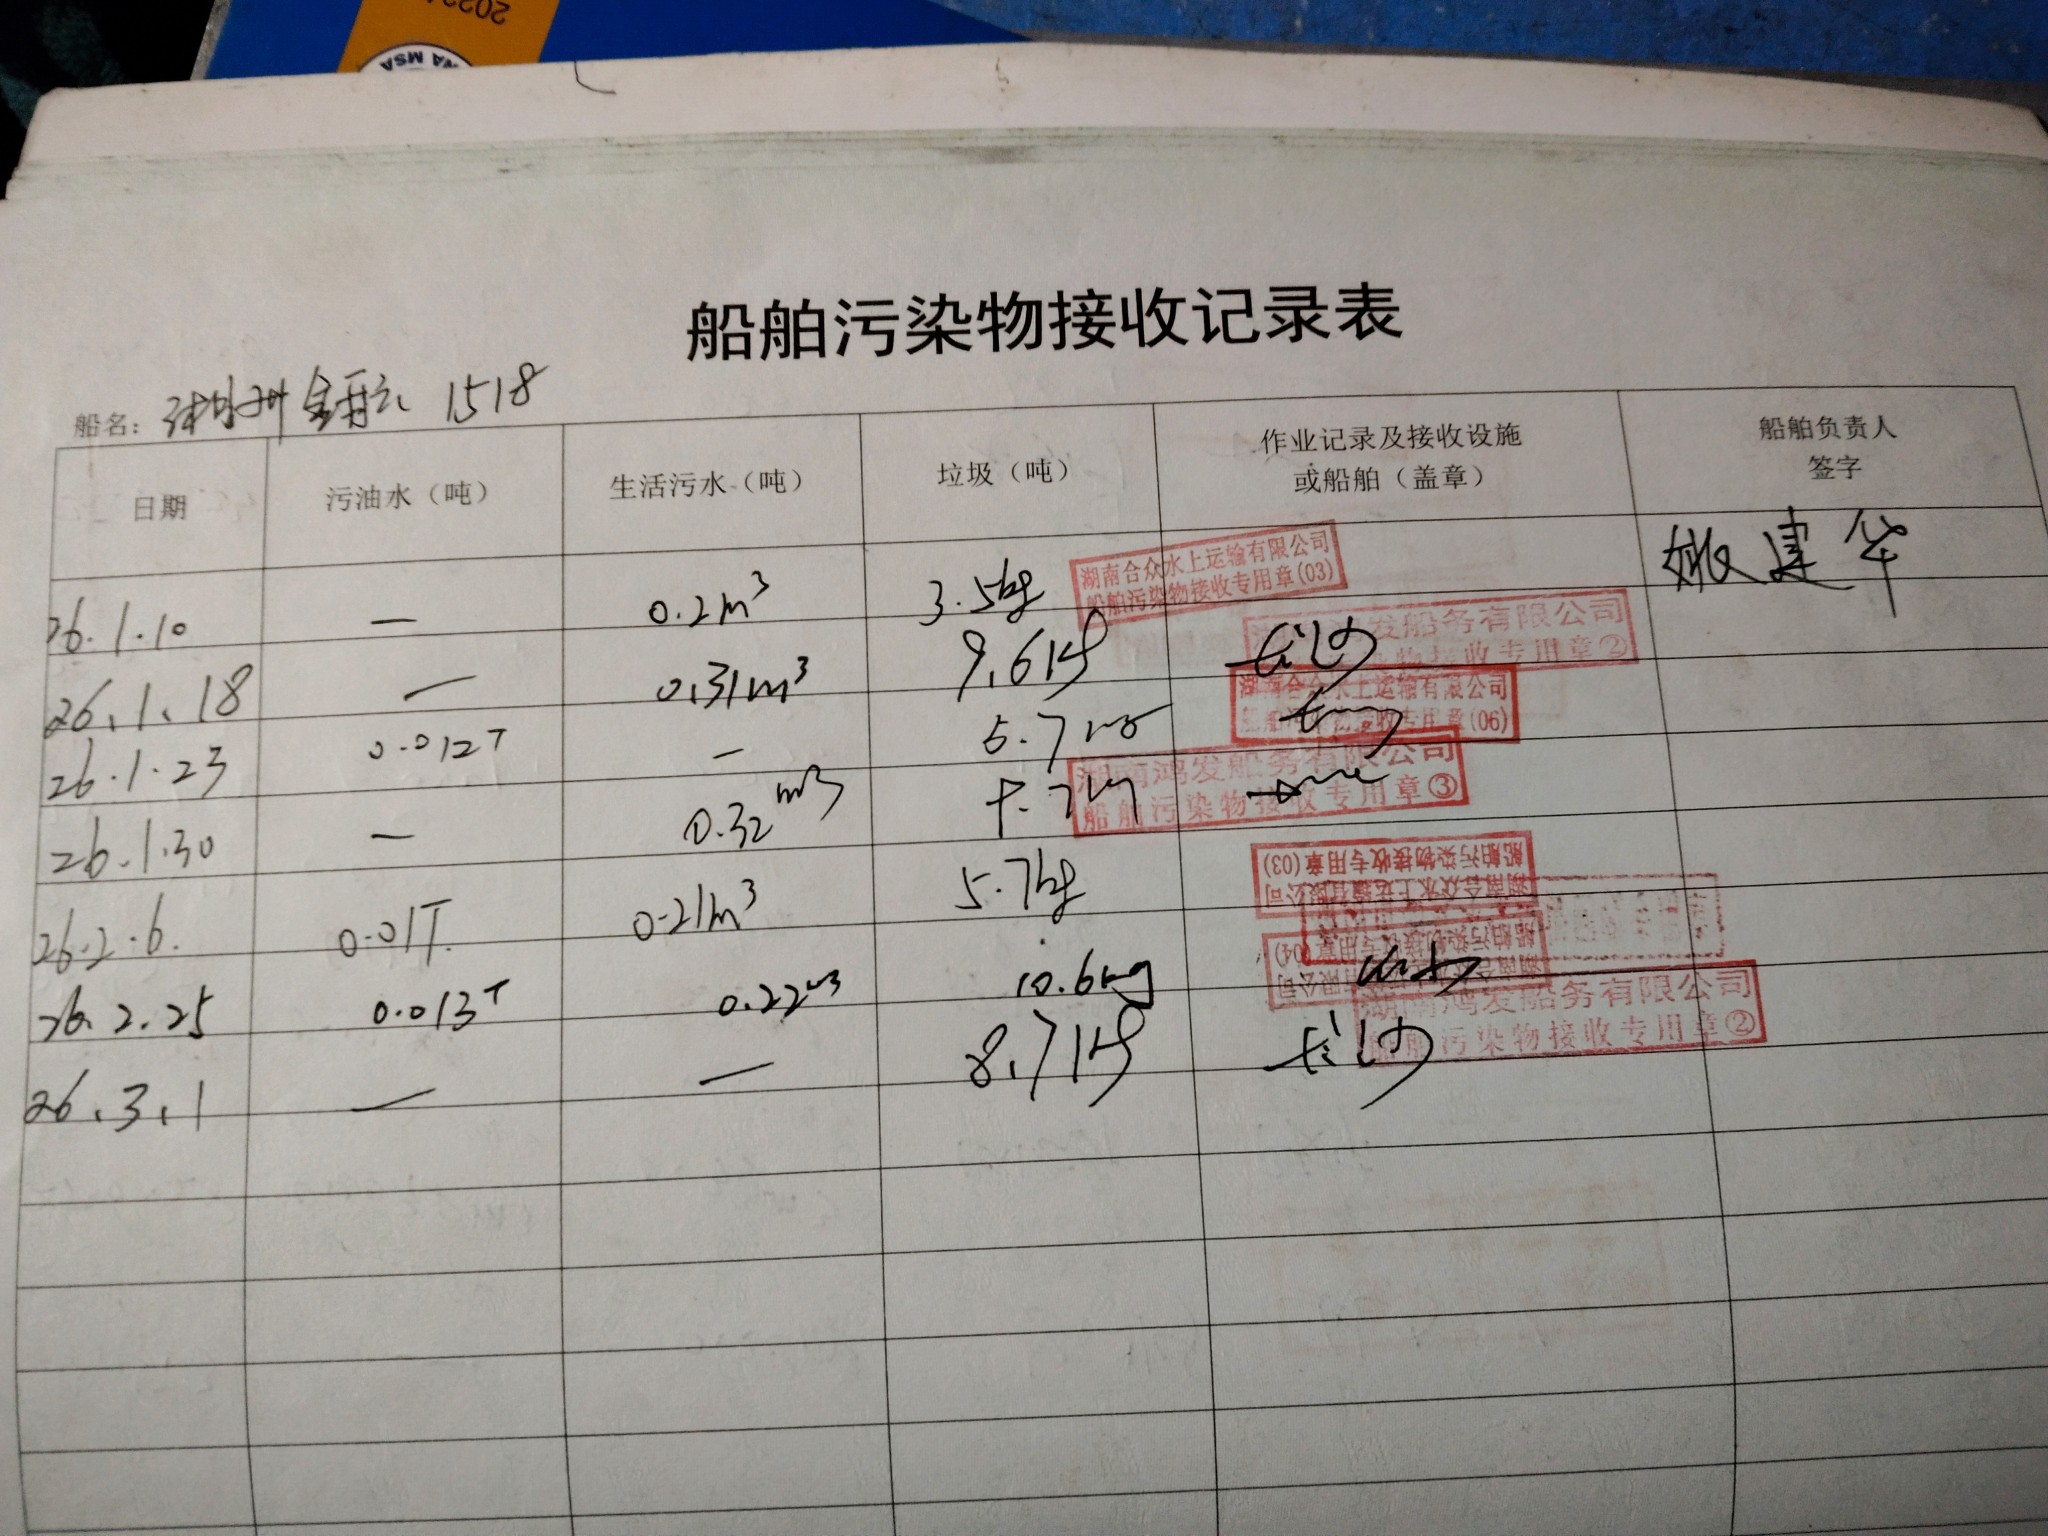 船舶污染物接收记录表
船名： 1518
日期 污油水（吨） 生活污水（吨） 垃圾（吨） 作业记录及接收设施或船舶（盖章） 船舶负责人签字
26.1.10 — 0.2m³ 3.5kg 湖南合众水上运输有限公司 船舶污染物接收专用章(03) 姚建华
26.1.18 — 0.31m³ 9.6kg 长沙 发船务有限公司 物接收专用章②
26.1.23 0.012T — 5.7kg 湖南合众水上运输有限公司 接收专用章(06)
26.1.30 — 0.32m3 湖南鸿发船务有限公司 船舶污染物接收专用章③
26.2.6. 0.01T. 0.21m³ 5.7kg 湖南合众水上运输有限公司 船舶污染物接收专用章(03)
26.2.25 0.013T 0.22m3 10.6kg 船舶污染物接收专用章(04)
26.3.1 — — 8.7kg 长沙 湖南鸿发船务有限公司 船舶污染物接收专用章②